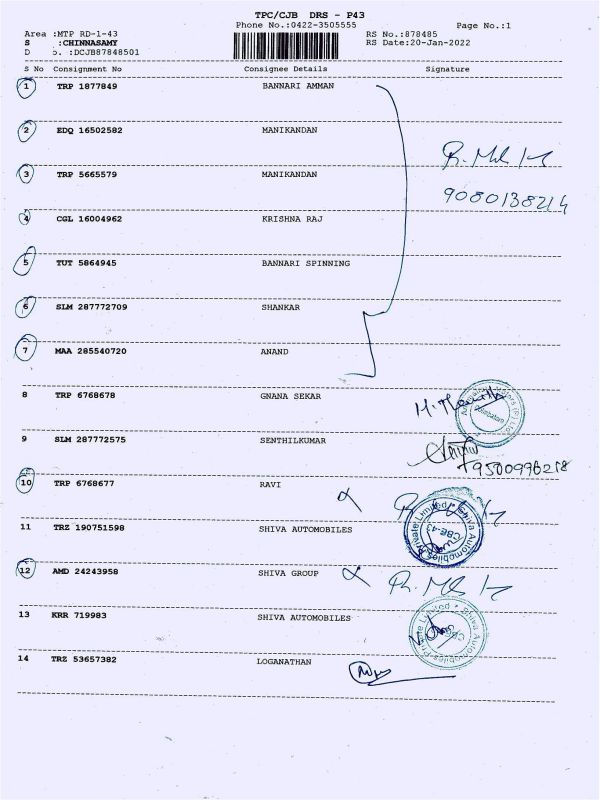 TPC/CJB DRS - P43
Phone No.:0422-3505555 Page No.:1
Area :MTP RD-1-43 RS No.:878485
S :CHINNASAMY RS Date:20-Jan-2022
D o. :DCJB87848501
S No Consignment No Consignee Details Signature
1 TRP 1877849 BANNARI AMMAN
2 EDQ 16502582 MANIKANDAN
3 TRP 5665579 MANIKANDAN
9080138214
4 CGL 16004962 KRISHNA RAJ
5 TUT 5864945 BANNARI SPINNING
6 SLM 287772709 SHANKAR
7 MAA 285540720 ANAND
8 TRP 6768678 GNANA SEKAR
9 SLM 287772575 SENTHILKUMAR
9500996218
10 TRP 6768677 RAVI
11 TRZ 190751598 SHIVA AUTOMOBILES
Shiva Automobiles Private Limited
CBE-43
12 AMD 24243958 SHIVA GROUP
13 KRR 719983 SHIVA AUTOMOBILES
Shiva Automobiles Private Limited
14 TRZ 53657382 LOGANATHAN